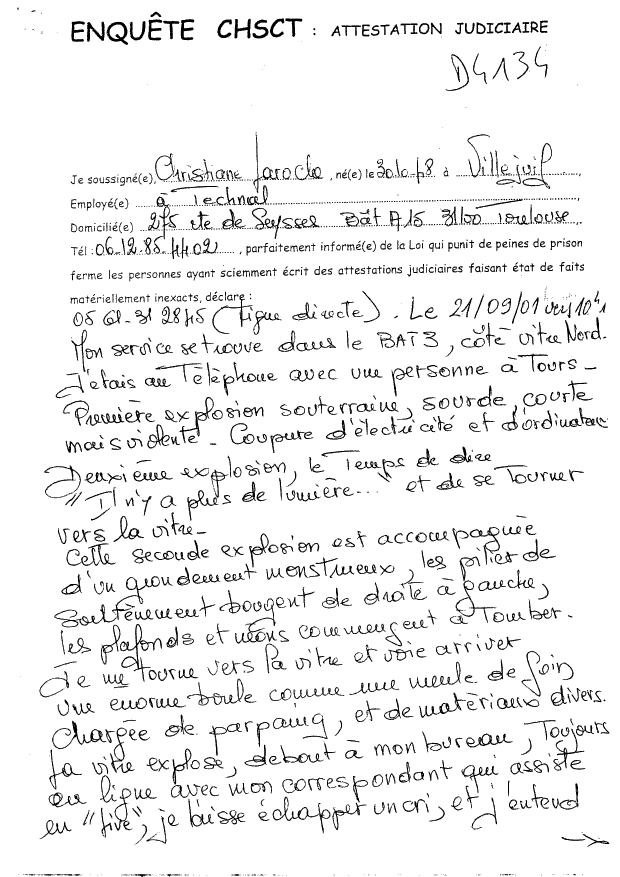 ENQUÊTE CHSCT : ATTESTATION JUDICIAIRE
D4134
Je soussigné(e), Christiane Laroche, né(e) le 30.10.48 à Villejuif,
Employé(e) à Technal
Domicilié(e) 275 rte de Seysses Bât A15 31100 Toulouse,
Tél : 06.12.85.44.02, parfaitement informé(e) de la Loi qui punit de peines de prison
ferme les personnes ayant sciemment écrit des attestations judiciaires faisant état de faits
matériellement inexacts, déclare :
05 61.31 28 45 (Ligne directe). Le 21/09/01 vers
Mon service se trouve dans le BAT 3, côté vitre Nord.
J'étais au Téléphone avec une personne à Tours -
Première explosion souterraine, sourde, courte
mais violente - Coupure d'électricité et d'ordinateur
Deuxième explosion, le Temps de dire
"Il n'y a plus de lumière..." et de se Tourner
vers la vitre -
Cette seconde explosion est accompagnée
d'un grondement monstrueux, les pilier de
soutènement bougent de droite à gauche,
les plafonds et néons commençent à Tomber.
Je me tourne vers la vitre et voie arriver
une enorme boule comme une meule de foin
chargée de parpaing, et de matériaux divers.
la vitre explose, debout à mon bureau, Toujours
en ligne avec mon correspondant qui assiste
en "live", je laisse échapper un cri, et j'entend
→